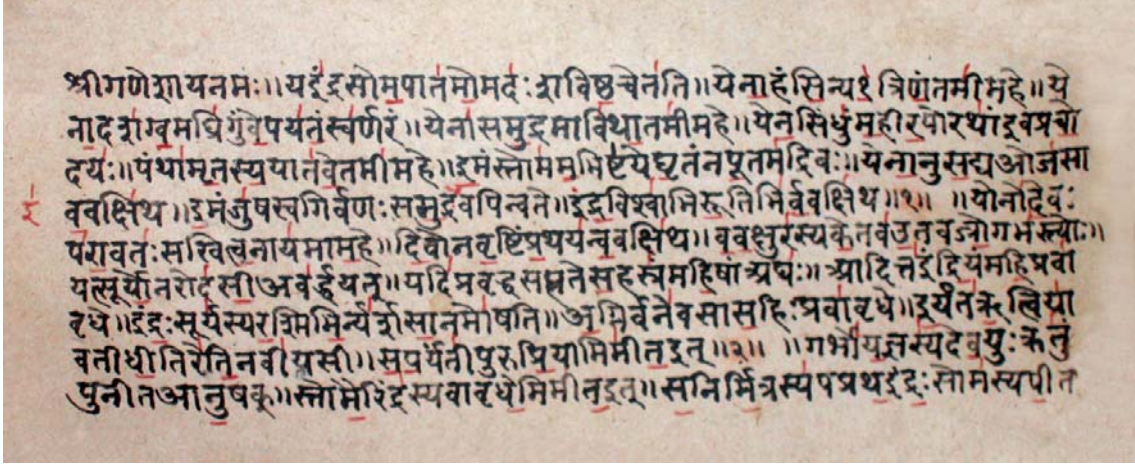 श्रीगणेशायनमः॥यइंद्रसोमपातमोमदःशविष्ठचेतति॥येनाहंसिन्य१त्रिणंतमीमहे॥ये
नादशग्वमध्रिगुंवेपयंतंस्वर्णरं॥येनासमुद्रमाविथातमीमहे॥येनसिंधुंमहीरपोरथाँइवप्रचो
दयः॥पंथामृतस्ययातवेतमीमहे॥इमंस्तोममभिष्टयेघृतंनपूतमद्रिवः॥येनानुसद्यओजसा
इ
ववक्षिथ॥इमंजुषस्वगिर्वणःसमुद्रवपिन्वते॥इंद्रविश्वाभिरूतिभिर्ववक्षिथ॥१॥ ॥योनोदेवः
परावतःसखित्वनायमामहे॥दिवोनवृष्टिंप्रथयन्ववक्षिथ॥ववक्षुरस्यकेतवउतवज्रोगभस्त्योः॥
यत्सूर्योनरोदसीअवर्द्धयत्॥यदिप्रवृद्धसत्पतेसहस्रंमहिषाँअघः॥आदित्तइंद्रियंमहिप्रवा
वृधे॥इंद्रःसूर्यस्यरश्मिभिर्न्यर्शसानमोषति॥अग्निर्वनेवसासहिःप्रवावृधे॥इयंतऋत्विया
वतीधीतिरेतिनवीयसी॥सपर्यंतीपुरुप्रियामिमीतइत्॥२॥ ॥गर्भोयज्ञस्यदेवयुःक्रतुं
पुनीतआनुषक्॥स्तोमैरिंद्रस्यवावृधेमिमीतइत्॥सनिर्मित्रस्यपप्रथइंद्रःसोमस्यपीत